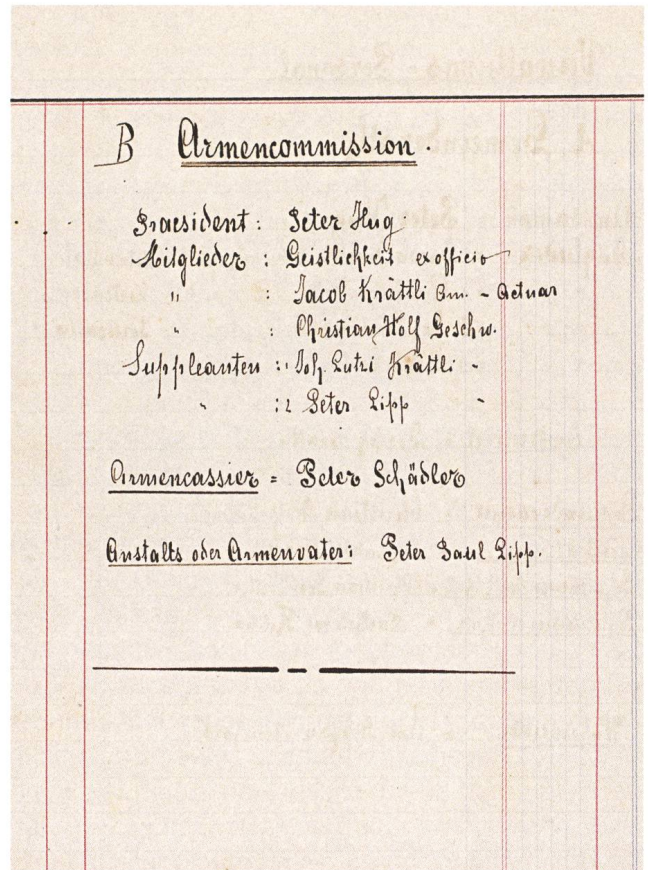 B Armencommission.
Praesident: Peter Hug
Mitglieder: Geistlichkeit ex officio
" : Jacob Krättli Am. - Actuar
" : Christian Wolf Geschw.
Suppleanten: 1 Joh. Lutzi Krättli "
" : 2 Peter Lipp "
Armencassier = Peter Schädler
Anstalts oder Armenvater: Peter Paul Lipp.